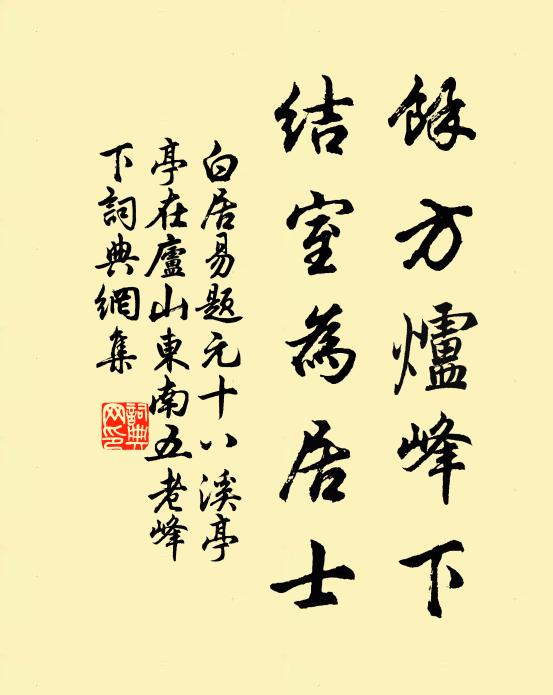 餘方爐峰下
結室為居士
白居易題元十八溪亭
亭在廬山東南五老峰
下詞典網集
詞典网印